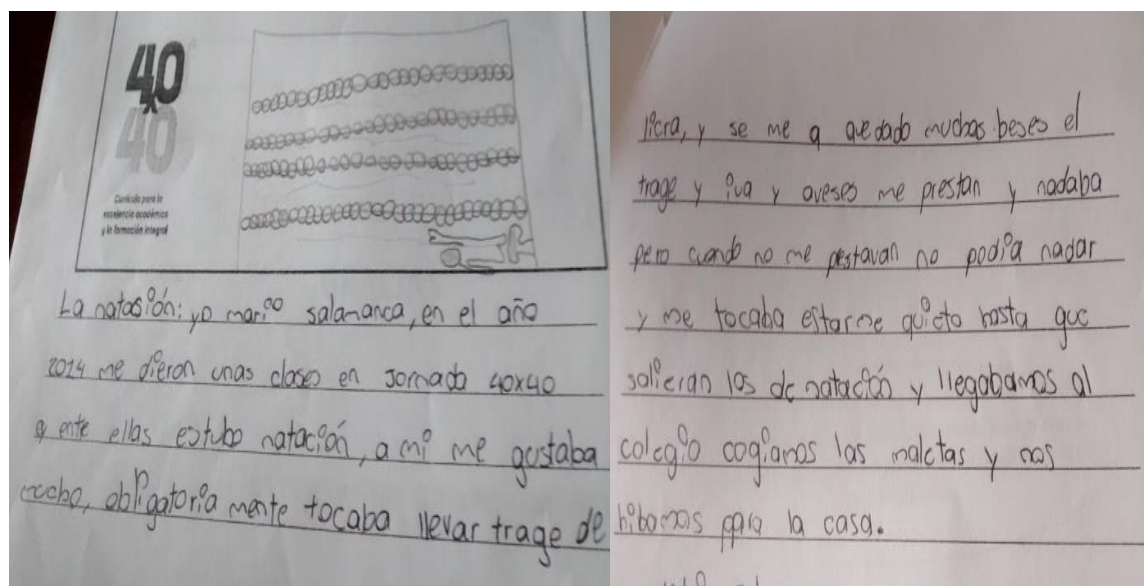 40
x
40
Currículo para la
excelencia académica
y la formación integral
La natasión: yo mario salamanca, en el año
2014 me dieron unas clases en Jornada 40x40
y ente ellas estubo natación, a mi me gustaba
mucho, obligatoria mente tocaba llevar trage de
licra, y se me a quedado muchas beses el
trage y iva y aveses me prestan y nadaba
pero cuando no me pestavan no podia nadar
y me tocaba estarme quieto hasta que
salieran los de natación y llegabamos al
colegio cogiamos las maletas y nos
hibamos para la casa.